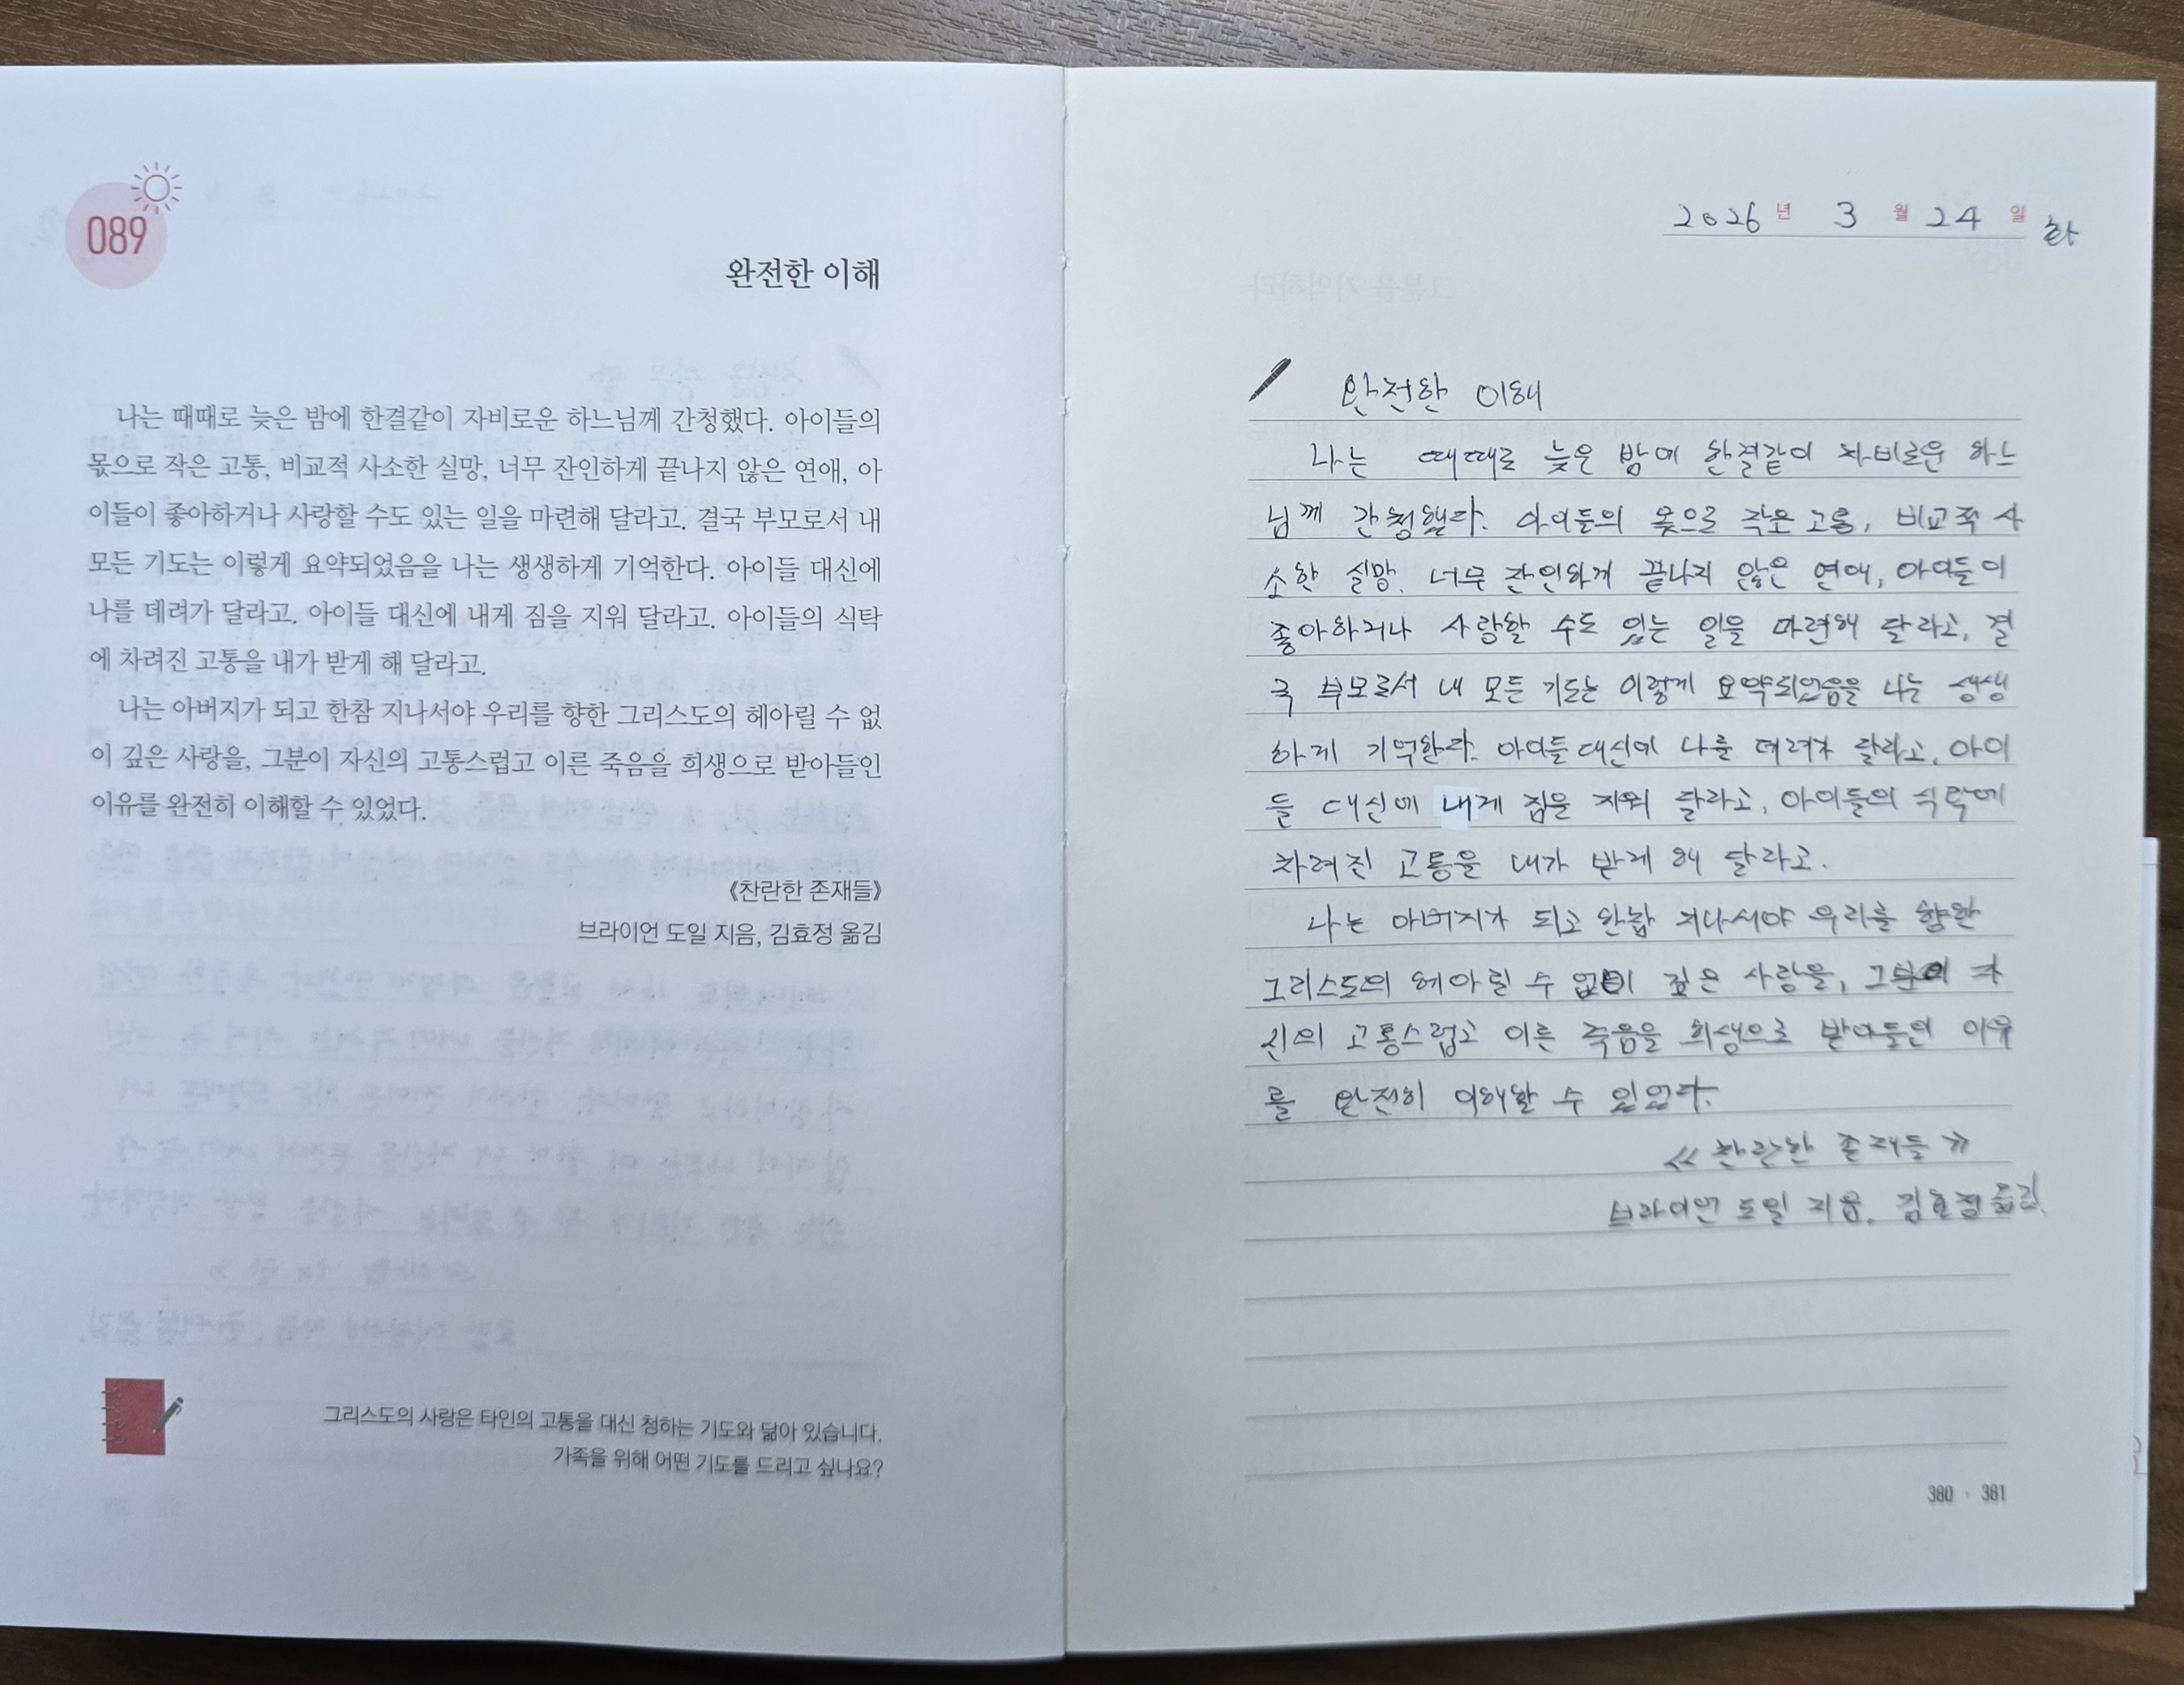 089
완전한 이해
나는 때때로 늦은 밤에 한결같이 자비로운 하느님께 간청했다. 아이들의
몫으로 작은 고통, 비교적 사소한 실망, 너무 잔인하게 끝나지 않은 연애, 아
이들이 좋아하거나 사랑할 수도 있는 일을 마련해 달라고. 결국 부모로서 내
모든 기도는 이렇게 요약되었음을 나는 생생하게 기억한다. 아이들 대신에
나를 데려가 달라고. 아이들 대신에 내게 짐을 지워 달라고. 아이들의 식탁
에 차려진 고통을 내가 받게 해 달라고.
나는 아버지가 되고 한참 지나서야 우리를 향한 그리스도의 헤아릴 수 없
이 깊은 사랑을, 그분이 자신의 고통스럽고 이른 죽음을 희생으로 받아들인
이유를 완전히 이해할 수 있었다.
《찬란한 존재들》
브라이언 도일 지음, 김효정 옮김
그리스도의 사랑은 타인의 고통을 대신 청하는 기도와 닮아 있습니다.
가족을 위해 어떤 기도를 드리고 싶나요?
2026년 3월 24일 화
완전한 이해
나는 때때로 늦은 밤에 한결같이 자비로운 하느
님께 간청했다. 아이들의 몫으로 작은 고통, 비교적 사
소한 실망. 너무 잔인하게 끝나지 않은 연애, 아이들이
좋아하거나 사랑할 수도 있는 일을 마련해 달라고, 결
국 부모로서 내 모든 기도는 이렇게 요약되었음을 나는 생생
하게 기억한다. 아이들 대신에 나를 데려가 달라고, 아이
들 대신에 내게 짐을 지워 달라고, 아이들의 식탁에
차려진 고통을 내가 받게 해 달라고.
나는 아버지가 되고 한참 지나서야 우리를 향한
그리스도의 헤아릴 수 없이 깊은 사랑을, 그분이 자
신의 고통스럽고 이른 죽음을 희생으로 받아들인 이유
를 완전히 이해할 수 있었다.
《찬란한 존재들》
브라이언 도일 지음. 김효정 옮김.
380 · 381